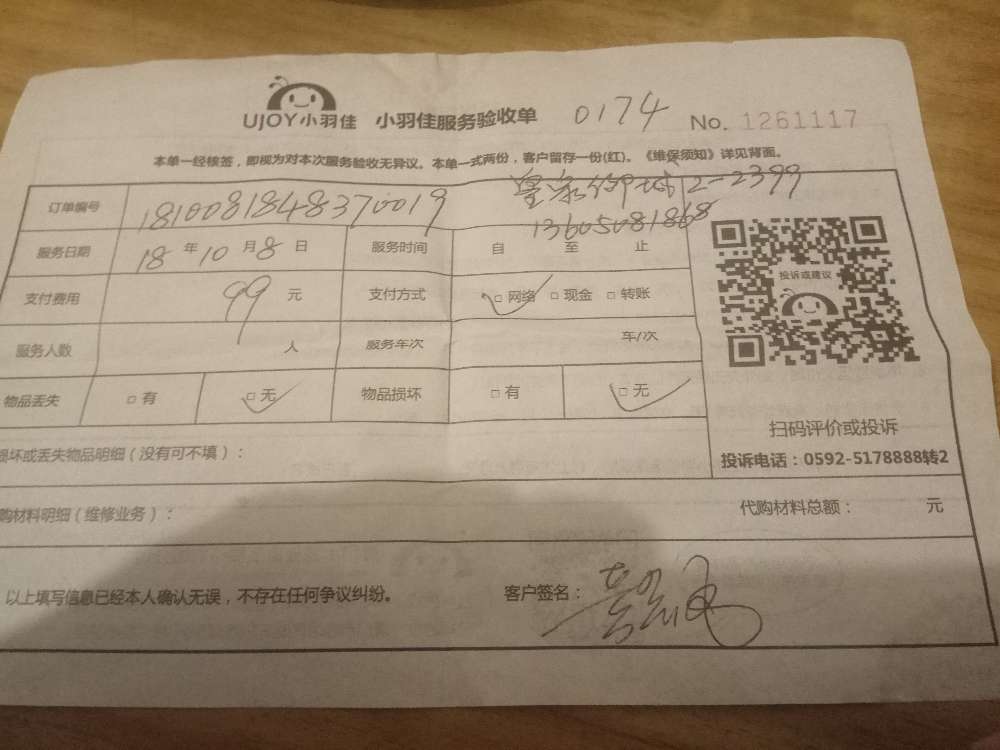 UJOY小羽佳 小羽佳服务验收单 0174 No. 1261117
本单一经核签，即视为对本次服务验收无异议。本单一式两份，客户留存一份(红)。《维保须知》详见背面。
订单编号 1810081848370019 2-2399
13605081868
服务日期 18 年 10 月 8 日 服务时间 自 至 止
支付费用 99 元 支付方式 □ 网络 □ 现金 □ 转账
投诉或建议
服务人数 人 服务车次 车/次
物品丢失 □ 有 □ 无 物品损坏 □ 有 □ 无
扫码评价或投诉
投诉电话：0592-5178888转2
损坏或丢失物品明细（没有可不填）：
购材料明细（维修业务）： 代购材料总额： 元
以上填写信息已经本人确认无误，不存在任何争议纠纷。 客户签名：